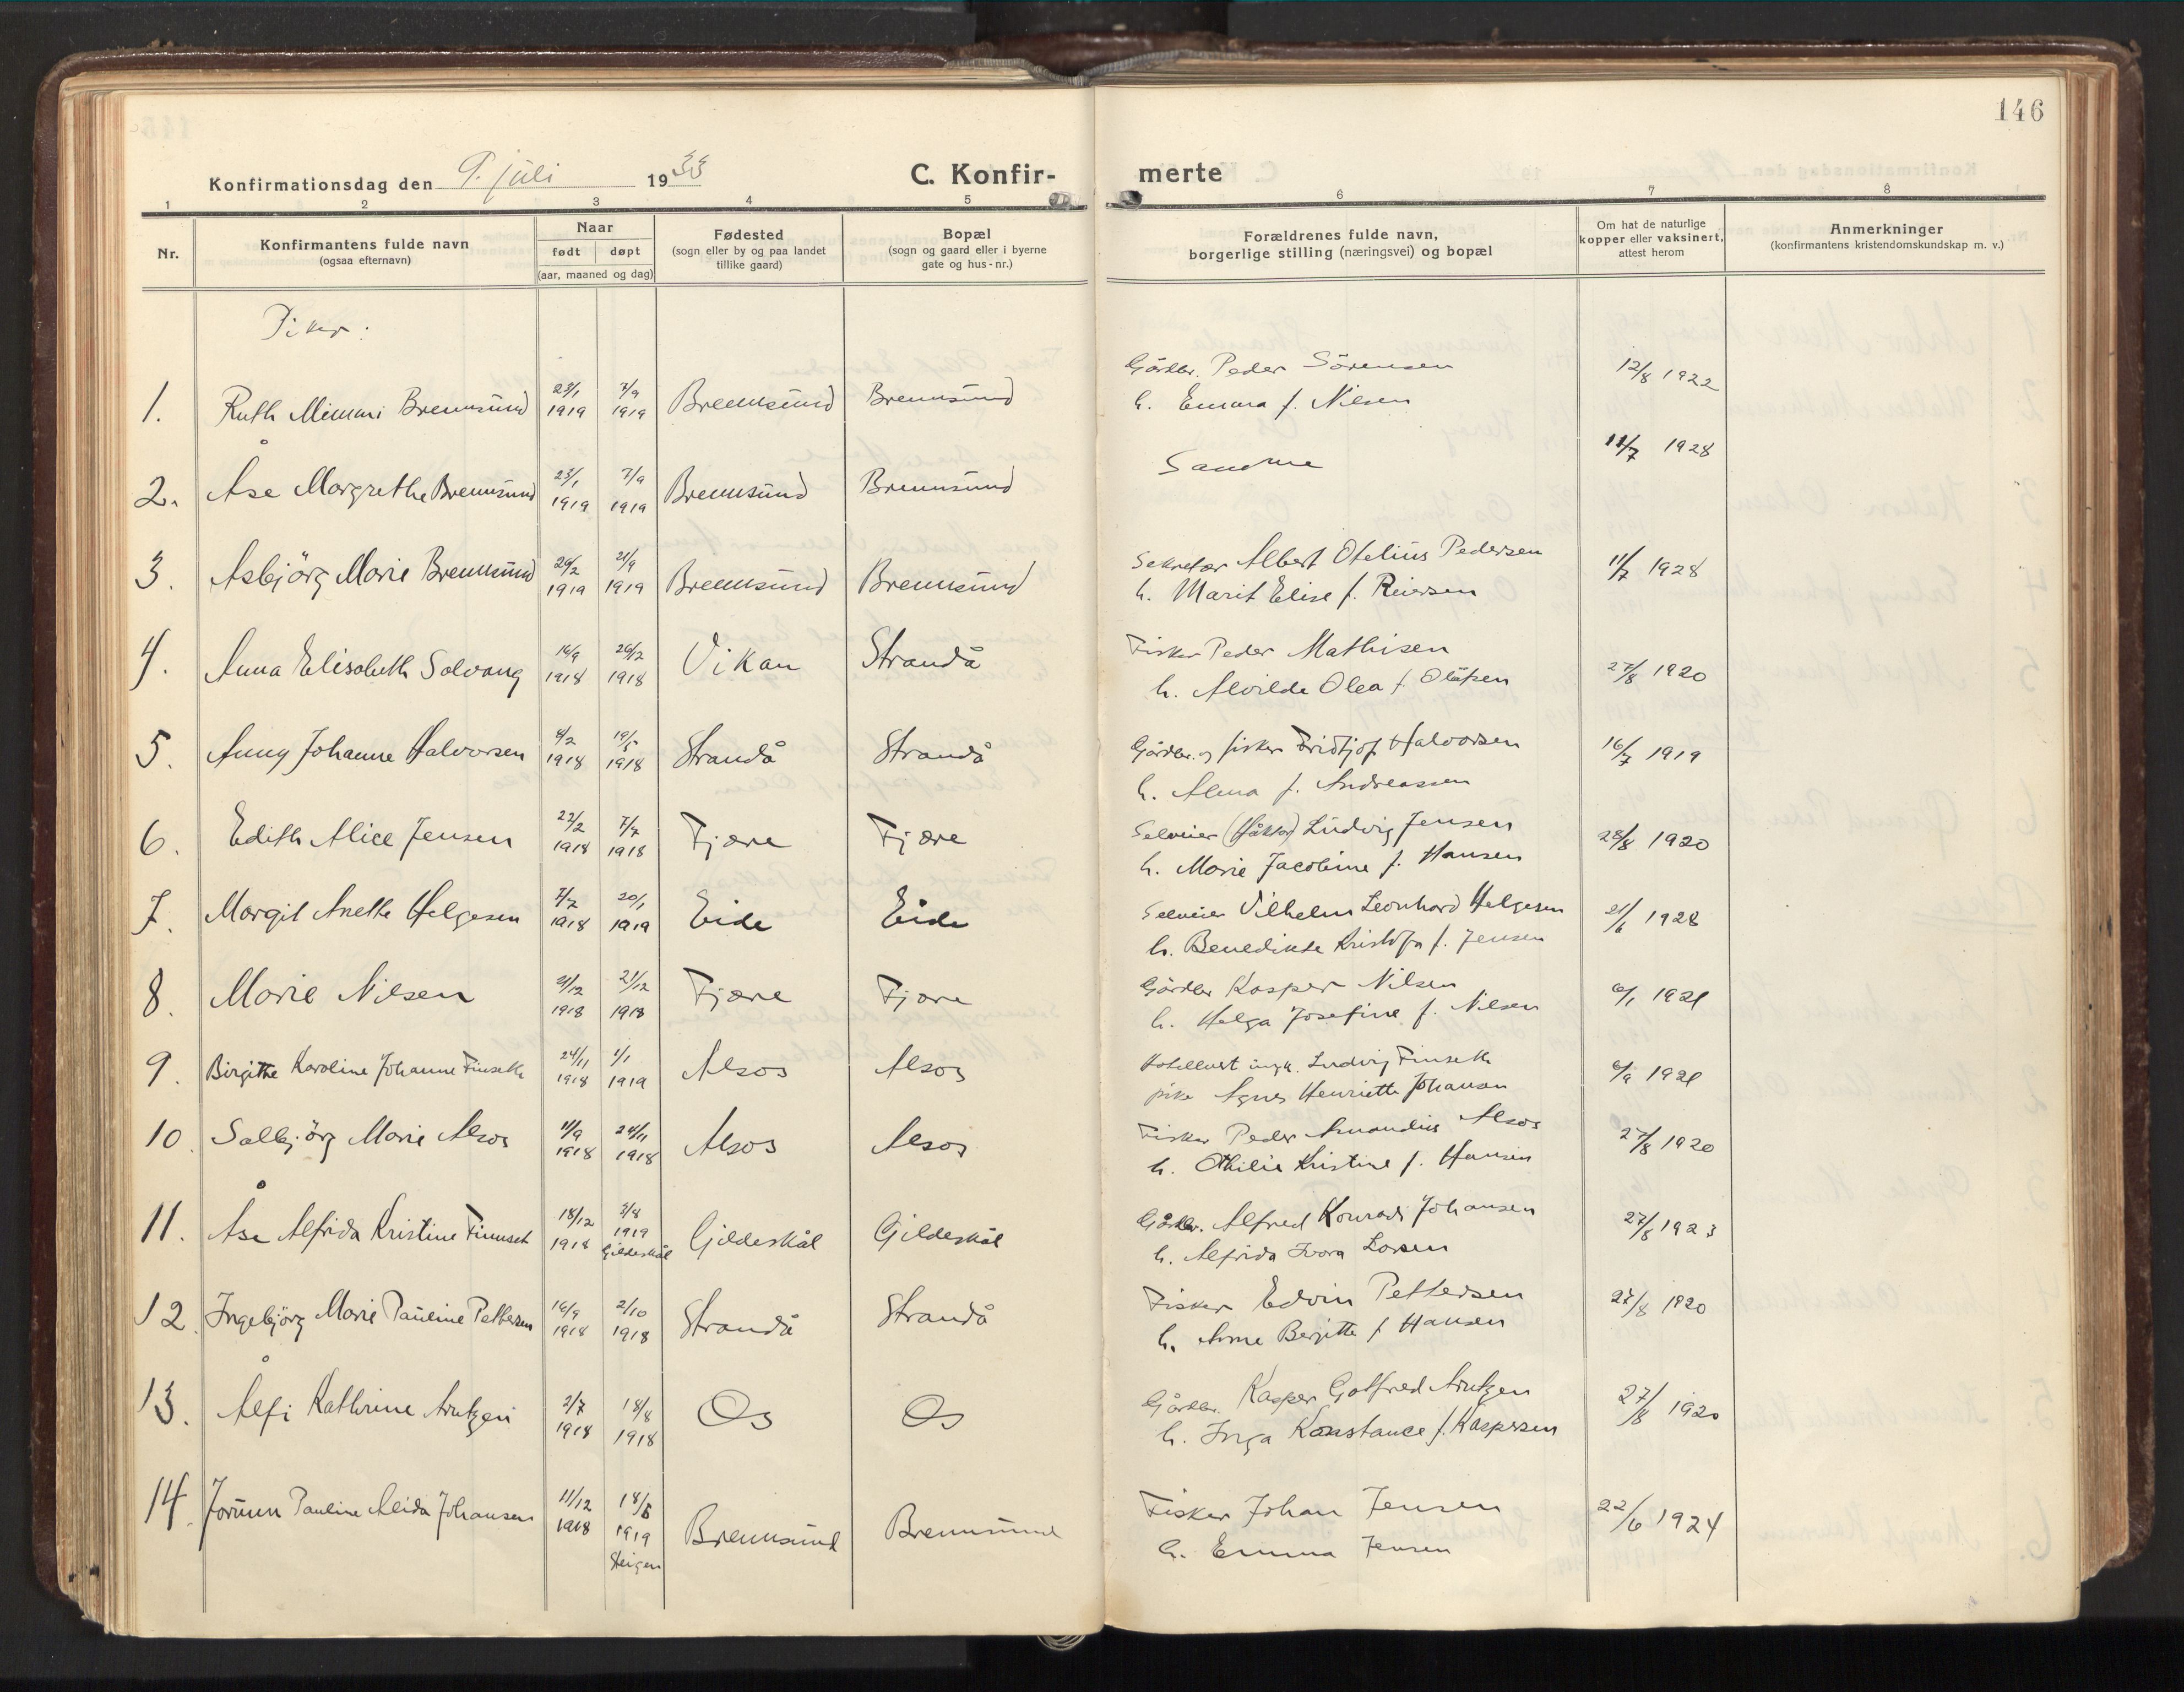 146
Konfirmationsdag den 9. juli 1933 C. Konfir- merte
1 2 3 4 5 6 7 8
Nr.
Konfirmantens fulde navn
(ogsaa efternavn)
Naar
født døpt
(aar, maaned og dag)
Fødested
(sogn eller by og paa landet
tillike gaard)
Bopæl
(sogn og gaard eller i byerne
gate og hus-nr.)
Forældrenes fulde navn,
borgerlige stilling (næringsvei) og bopæl
Om hat de naturlige
kopper eller vaksinert,
attest herom
Anmerkninger
(konfirmantens kristendomskundskap m. v.)
Piker:
1. Ruth Mimmi Brennsund 23/1 1919 7/9 1919 Brennsund Brennsund
Gårdbr. Peder Sörensen
h. Emma f. Nilsen
12/8 1922
2. Åse Margrethe Brennsund 23/1 1919 7/9 1919 Brennsund Brennsund
Samme
11/7 1928
3. Asbjörg Marie Brennsund 24/2 1919 21/9 1919 Brennsund Brennsund
Sekretær Albert Otelius Pedersen
h. Marit Elise f. Reiersen
11/7 1928
4. Anna Elisabeth Solvang 16/9 1918 26/12 1918 Vikan Strandå
Fisker Peder Mathisen
h. Alvilde Olea f. Olufsen
27/8 1920
5. Anny Johanne Halvorsen 4/2 1918 19/5 1918 Strandå Strandå
Gårdbr. og fisker Fridtjof Halvorsen
h. Alma f. Andreassen
16/7 1919
6. Edith Alice Jensen 22/2 1918 7/7 1918 Fjære Fjære
Selveier Ludvig Jensen
h. Marie Jacobine f. Hansen
28/8 1920
7. Margit Anette Helgesen 7/7 1918 20/1 1919 Eide Eide
Selveier Vilhelm Leonhard Helgesen
h. Benedikte Kristofa f. Jensen
21/6 1928
8. Marie Nilsen 21/12 1918 Fjære Fjære
Gårdbr Kasper Nilsen
h. Helga Josefine f. Nilsen
6/1 1921
9. Birgitte Karoline Johanne Finseth 24/11 1918 1/1 1919 Alsos Alsos
Ludvig Finseth
pike Agnes Henriette Johansen
6/9 1921
10. Solbjörg Marie Alsos 11/9 1918 24/11 1918 Alsos Alsos
Fisker Peder Amandius Alsos
h. Othilie Kristine f. Hansen
27/8 1920
11. Åse Alfrida Kristine Finnset 18/12 1918 3/8 1919 Gildeskål Gildeskål Gildeskål
Gårdbr. Alfred Konrad Johansen
h. Alfrida Ivora Larsen
27/8 1923
12. Ingebjörg Marie Pauline Pettersen 16/9 1918 2/10 1918 Strandå Strandå
Fisker Edvin Pettersen
h. Anne Bergitte f. Hansen
27/8 1920
13. Ålfi Kathrine Arntzen 2/7 1918 18/8 1918 Os Os
Gårdbr. Kasper Gotfred Arntzen
h. Inga Konstance f. Kaspersen
27/8 1920
14. Jorunn Pauline Alida Johansen 11/12 1918 18/5 1919 Steigen Brennsund Brennsund
Fisker Johan Jensen
h. Emma Jensen
22/6 1924